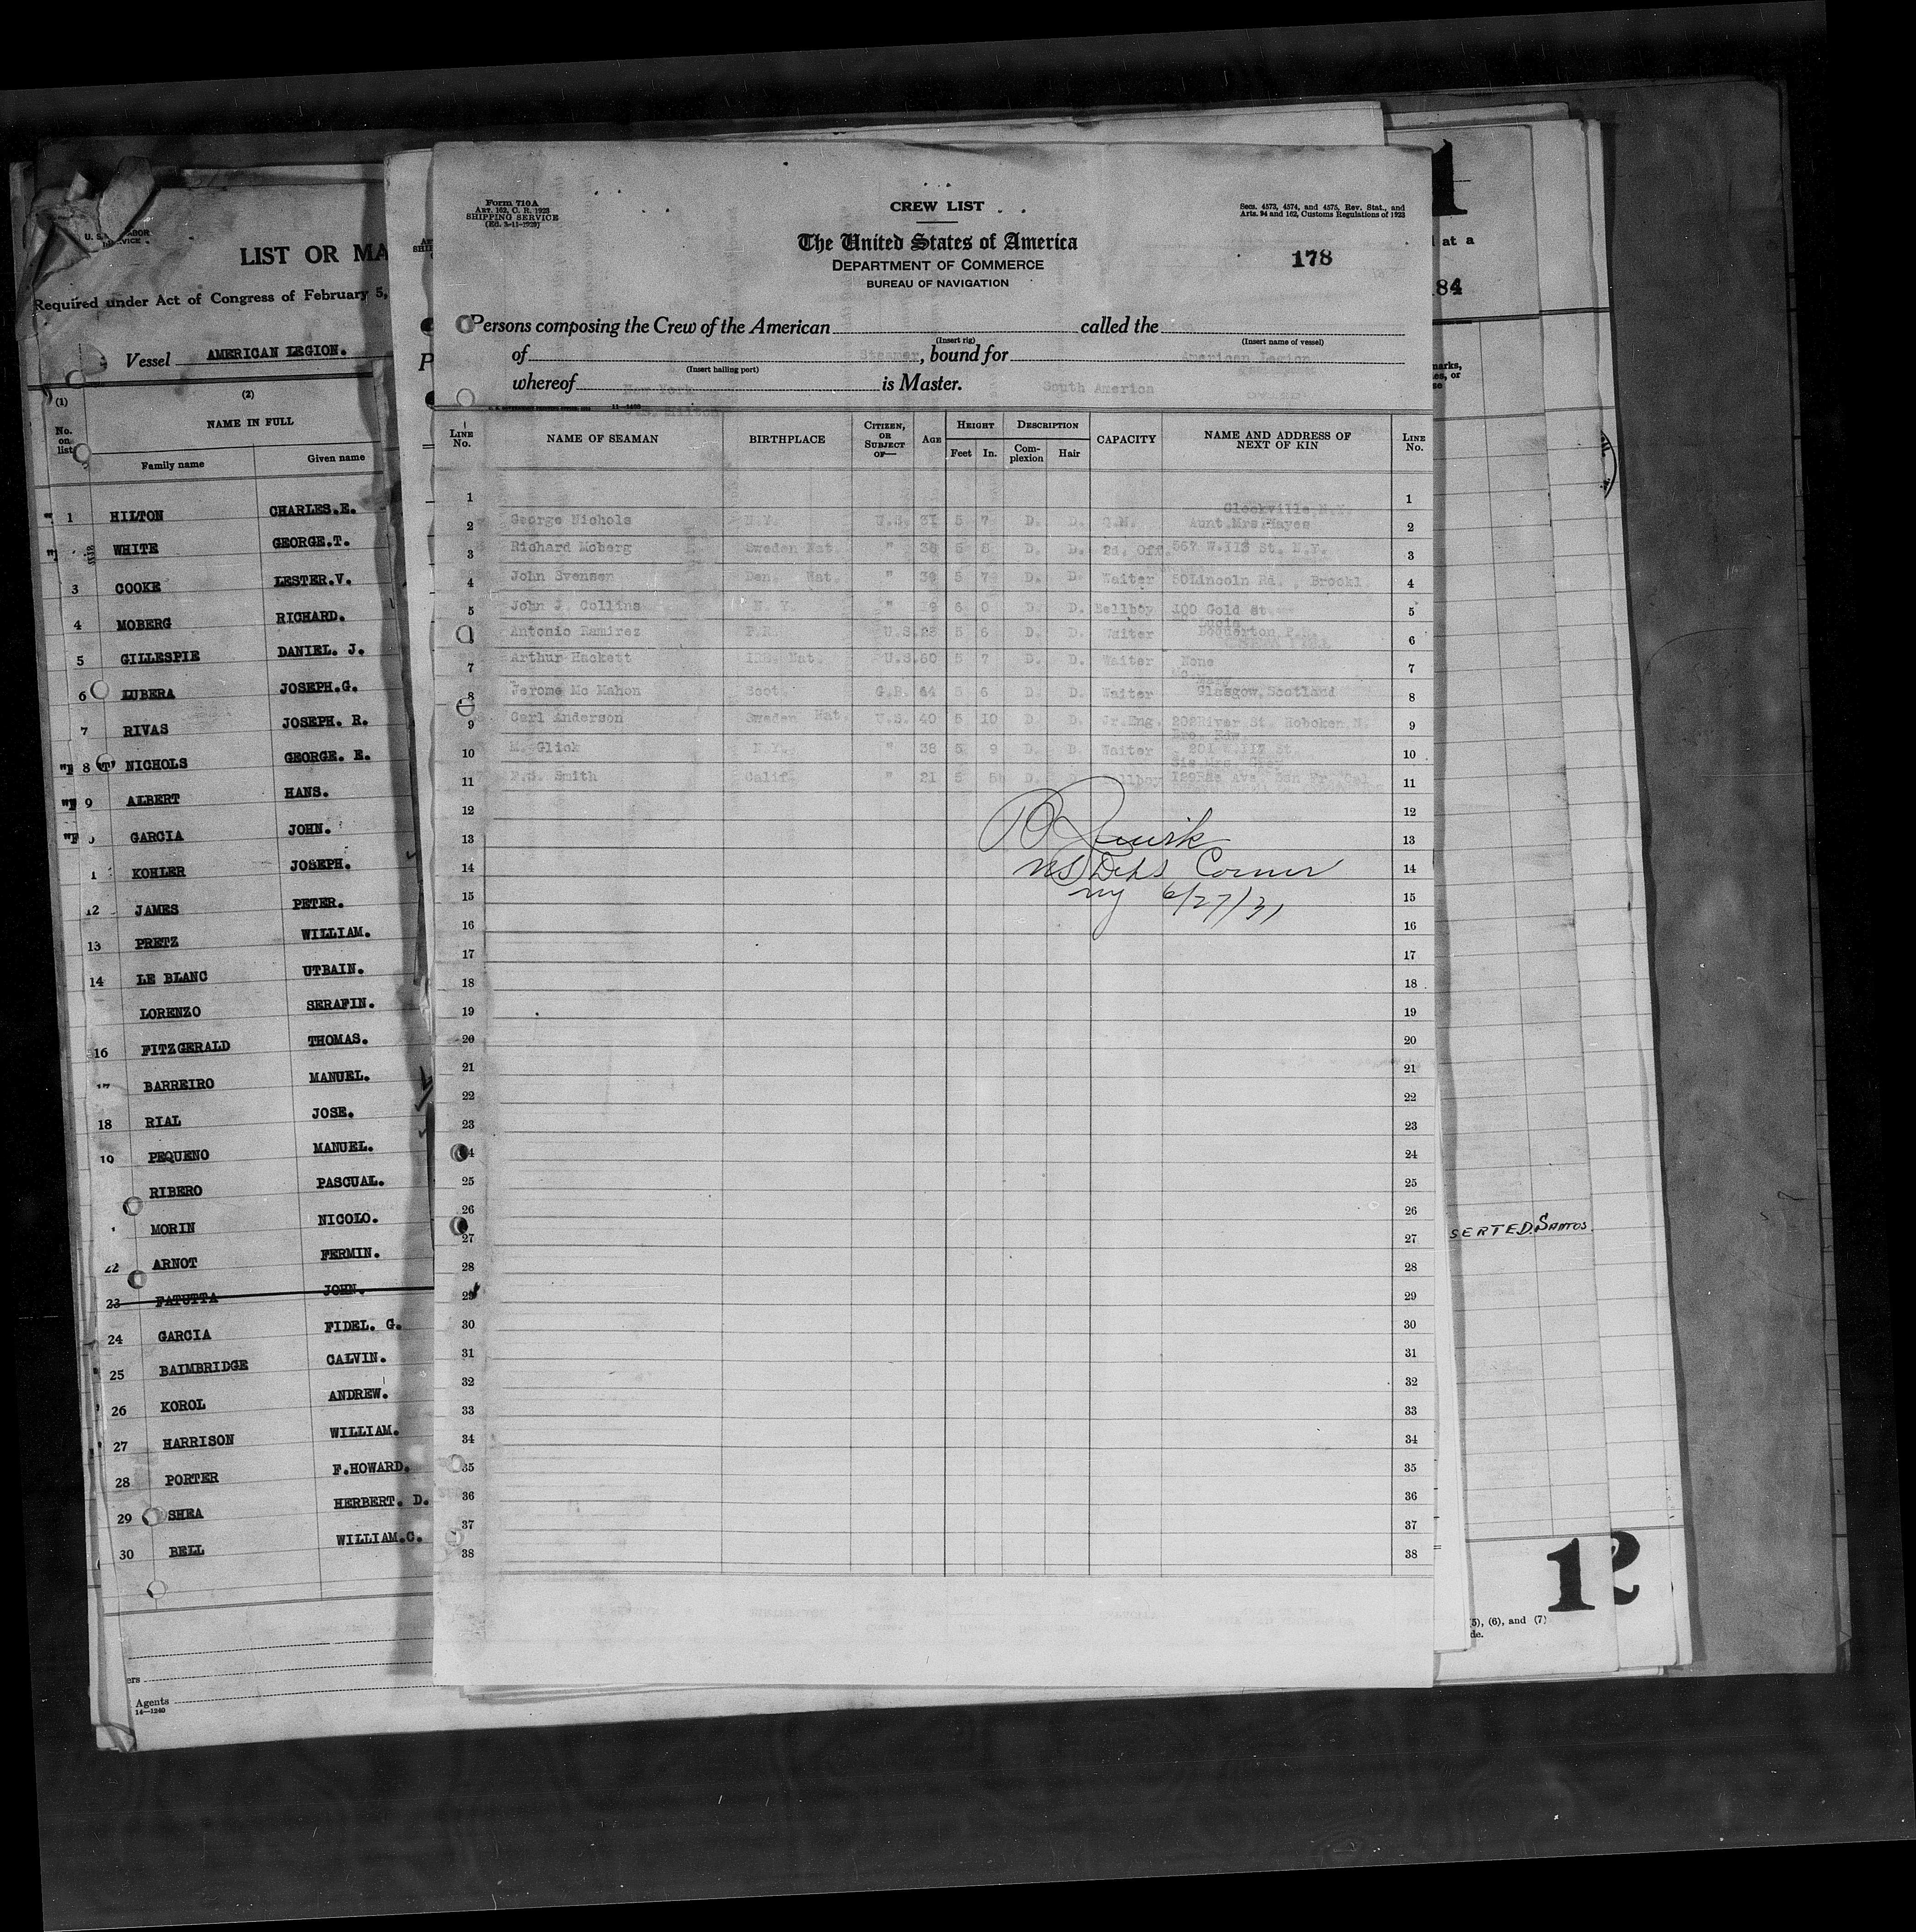 U. S.
LIST OR MA
Required under Act of Congress of February 5,
Vessel AMERICAN LEGION.
(1) (2)
No. on list
NAME IN FULL
Family name Given name
1 HILTON CHARLES.E.
WHITE GEORGE.T.
3 COOKE LESTER.V.
4 MOBERG RICHARD.
5 GILLESPIE DANIEL. J.
6 LUBERA JOSEPH.G.
7 RIVAS JOSEPH. R.
8 NICHOLS GEORGE. E.
9 ALBERT HANS.
GARCIA JOHN.
1 KOHLER JOSEPH.
12 JAMES PETER.
13 PRETZ WILLIAM.
14 LE BLANC UTBAIN.
LORENZO SERAFIN.
16 FITZGERALD THOMAS.
17 BARREIRO MANUEL.
18 RIAL JOSE.
19 PEQUENO MANUEL.
RIBERO PASCUAL.
MORIN NICOLO.
22 ARNOT FERMIN.
23 FATUTTA JOHN.
24 GARCIA FIDEL. G.
25 BAIMBRIDGE CALVIN.
26 KOROL ANDREW.
27 HARRISON WILLIAM.
28 PORTER F.HOWARD.
29 SHEA HERBERT. D.
30 BELL WILLIAM.C.
ers
Agents
14—1240
Form 710A
ART. 162, C. R. 1923
SHIPPING SERVICE
(Ed. 3-11-1929)
CREW LIST
Secs. 4573, 4574, and 4575, Rev. Stat., and
Arts. 94 and 162, Customs Regulations of 1923
The United States of America
DEPARTMENT OF COMMERCE
BUREAU OF NAVIGATION
178
Persons composing the Crew of the American called the
(Insert rig) (Insert name of vessel)
of Steamer, bound for American Legion
(Insert hailing port)
whereof New York is Master. South America
LINE No. NAME OF SEAMAN BIRTHPLACE CITIZEN, OR SUBJECT OF— AGE HEIGHT Feet In. DESCRIPTION Complexion Hair CAPACITY NAME AND ADDRESS OF NEXT OF KIN LINE No.
1 Clockville, N.Y. 1
2 George Nichols N.Y. U.S. 31 5 7 D. D. Q.M. Aunt Mrs Hayes 2
3 Richard Moberg Sweden Nat. " 38 5 8 D. D. 2d. Off. 567 W.113 St. N.Y. 3
4 John Svensen Den. Nat. " 39 5 7 D. D. Waiter 50 Lincoln Rd. Brookl. 4
5 John J. Collins N. Y. " 19 6 0 D. D. Bellboy 100 Gold St 5
Lucia
6 Antonio Ramirez P.R. U.S. 28 5 6 D. D. Waiter 6
7 Arthur Hackett Nat. U.S. 50 5 7 D. D. Waiter None 7
Mary
8 Jerome Mc Mahon Scot. G.B. 64 5 6 D. D. Waiter Glasgow, Scotland 8
9 Carl Anderson Sweden Nat. U.S. 40 5 10 D. D. Jr.Eng. 202 River St. Hoboken, N. 9
Bro. Edw.
10 M. Glick N.Y. " 38 5 9 D. D. Waiter 201 W.117 St. 10
Sis. Mrs.
11 F.S. Smith Calif. " 21 5 8 D. D. Bellboy 129 Rae Ave. San Fr. Cal 11
12 12
13 Quirk 13
14 Comr 14
15 NY 6/27/31 15
16 16
17 17
18 18
19 19
20 20
21 21
22 22
23 23
24 24
25 25
26 26
27 27
28 28
29 29
30 30
31 31
32 32
33 33
34 34
35 35
36 36
37 37
38 38
1
at a
84
marks,
es, or
se
SERTED. SANTOS.
12
2
(5), (6), and (7)
de.